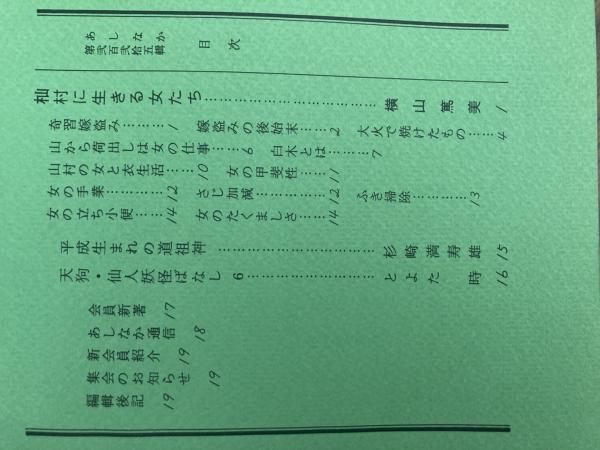 あしなか
第弐百弐拾五輯
目次
杣村に生きる女たち…………………………横山篤美 1
奇習嫁盗み………1 嫁盗みの後始末……2 大火で焼けたもの……4
山から荷出しは女の仕事……6 白木とは………7
山村の女と衣生活……10 女の甲斐性……11
女の手業…………12 さじ加減…………12 ふき掃除…………13
女の立ち小便……14 女のたくましさ……14
平成生まれの道祖神……………………杉崎満寿雄 15
天狗・仙人妖怪ばなし 6…………………とよた 時 16
会員新著 17
あしなか通信 18
新会員紹介 19
集会のお知らせ 19
編輯後記 19